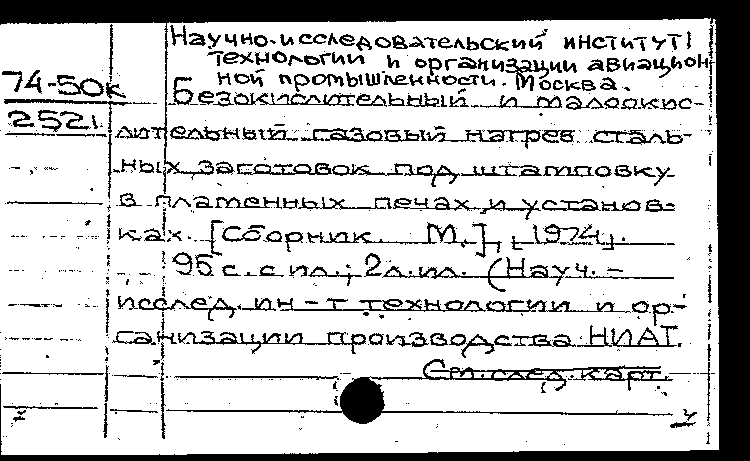 Научно-исследовательский институт
технологии и организации авиацион
ной промышленности. Москва.
74-50к
2521
Безокислительный и малоокис-
лительный газовый нагрев сталь-
ных заготовок под штамповку
в пламенных печах и установ-
ках. [Сборник. М.], [1974].
95 с. с ил.; 2 л. ил. (Науч.-
исслед. ин-т технологии и ор-
ганизации производства НИАТ.
См. след. карт.